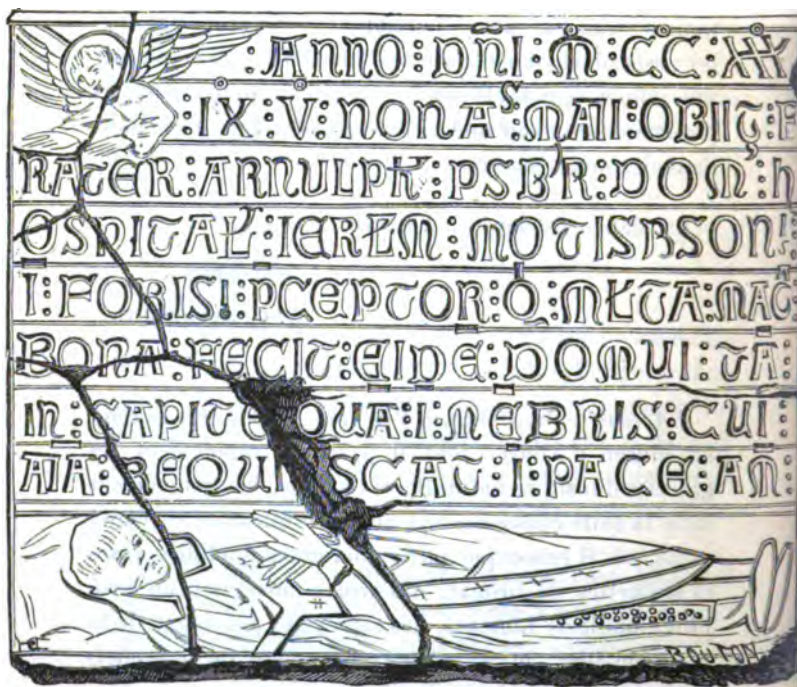 ANNO : DNI : M : CC : XXX
: IX : V : NONAS : MAII : OBIIT : F
RATER : ARNULPH : PSB'R : DOM' : H
OSPITAL : IERLM : MOTISBSON
I : FORIS : PCEPTOR : Q : MLTA : MAG
BONA : FECIT : EIDE : DOMUI : TA
IN : CAPITE QUA : I : MEBRIS : CUI :
AIA : REQUI SCAT : I : PACE : AM :
BOUTON